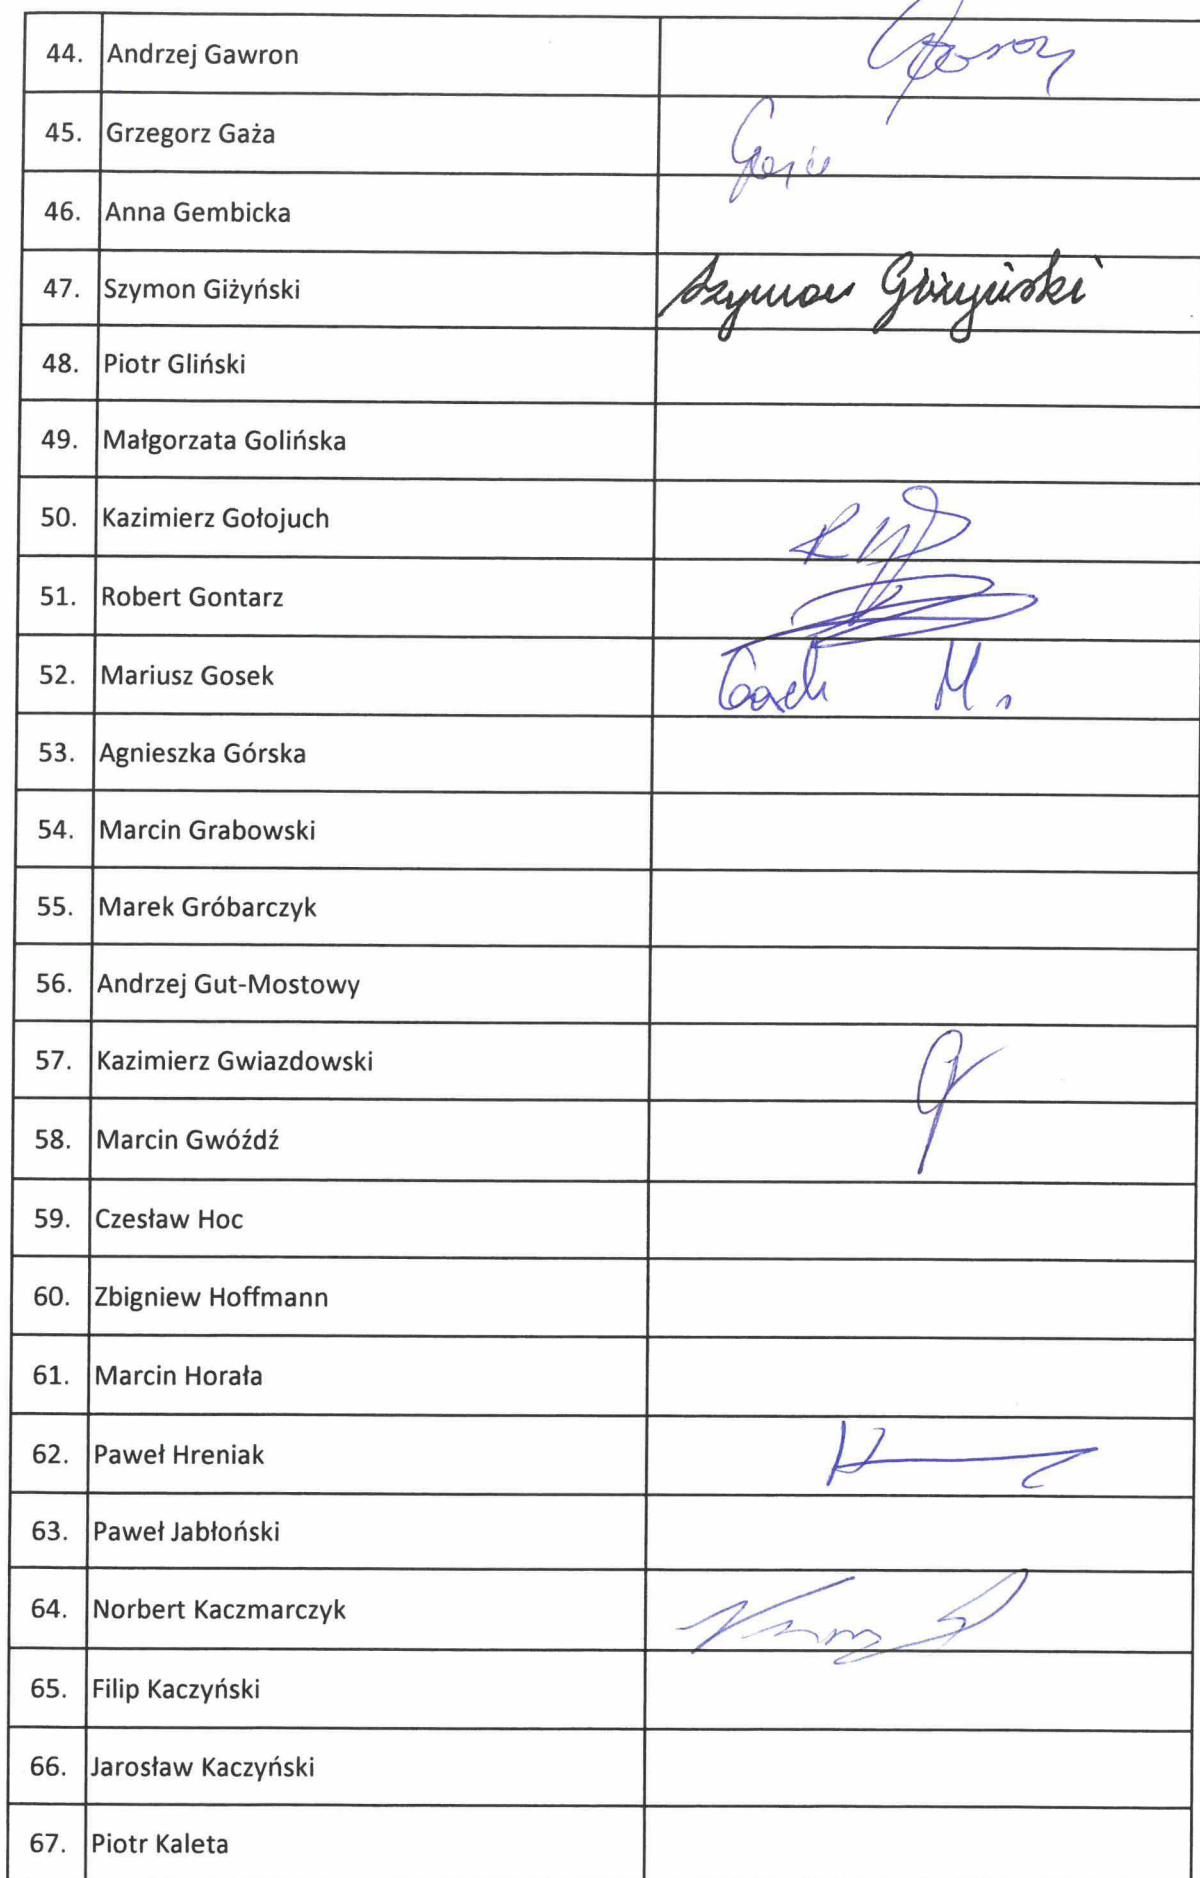 44. Andrzej Gawron
45. Grzegorz Gaża
46. Anna Gembicka
47. Szymon Giżyński Szymon Giżyński
48. Piotr Gliński
49. Małgorzata Golińska
50. Kazimierz Gołojuch
51. Robert Gontarz
52. Mariusz Gosek M.
53. Agnieszka Górska
54. Marcin Grabowski
55. Marek Gróbarczyk
56. Andrzej Gut-Mostowy
57. Kazimierz Gwiazdowski
58. Marcin Gwóźdź
59. Czesław Hoc
60. Zbigniew Hoffmann
61. Marcin Horała
62. Paweł Hreniak
63. Paweł Jabłoński
64. Norbert Kaczmarczyk
65. Filip Kaczyński
66. Jarosław Kaczyński
67. Piotr Kaleta